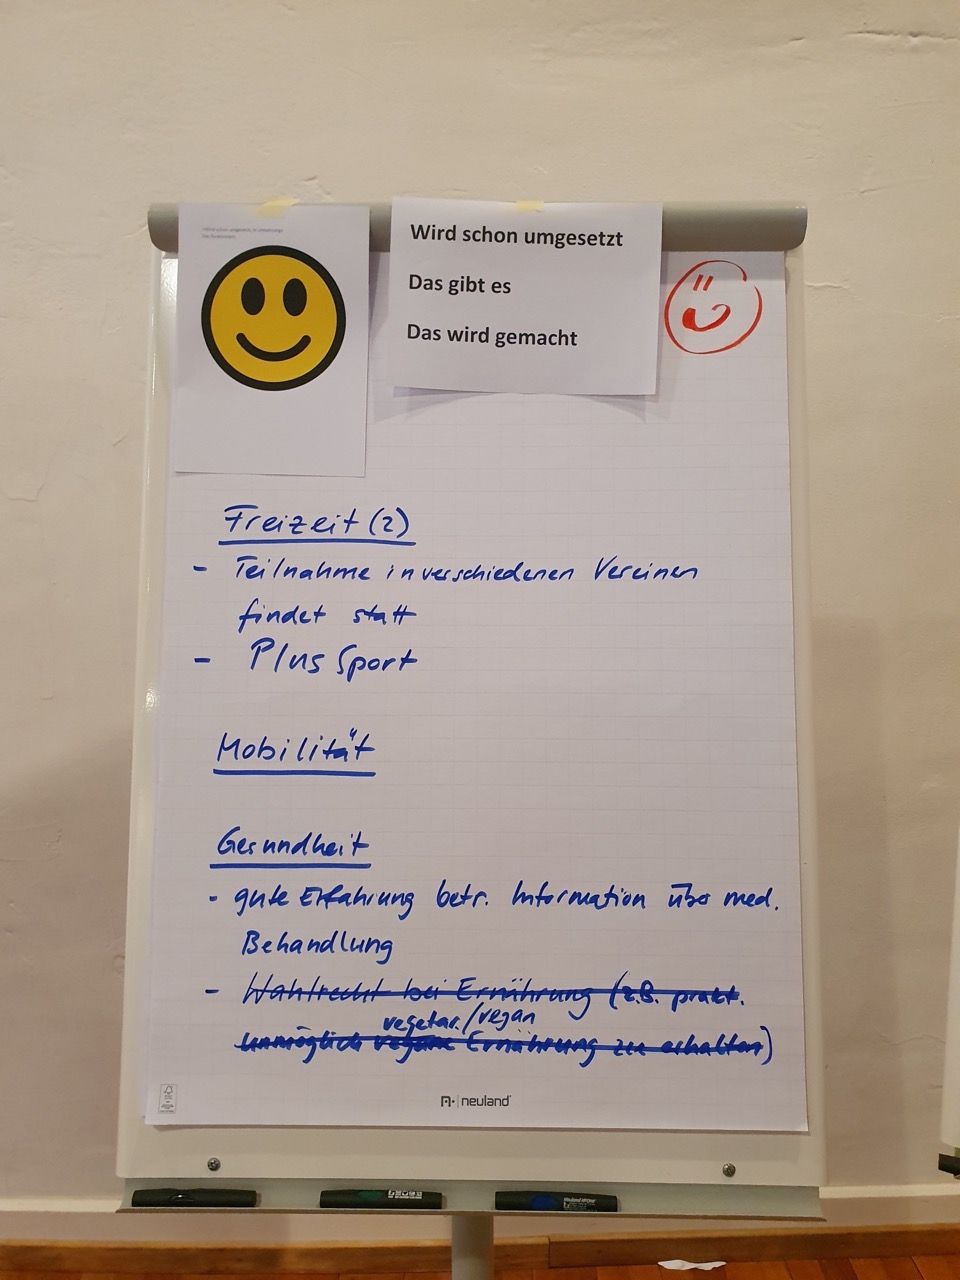 Wird schon umgesetzt
Das gibt es
Das wird gemacht
Freizeit (2)
- Teilnahme in verschiedenen Vereinen
findet statt
- Plus Sport
Mobilität
Gesundheit
- gute Erfahrung betr. Information über med.
Behandlung
- Wahlrecht bei Ernährung (z.B. prakt.
vegetar./vegan
unmöglich vegane Ernährung zu erhalten)
neuland